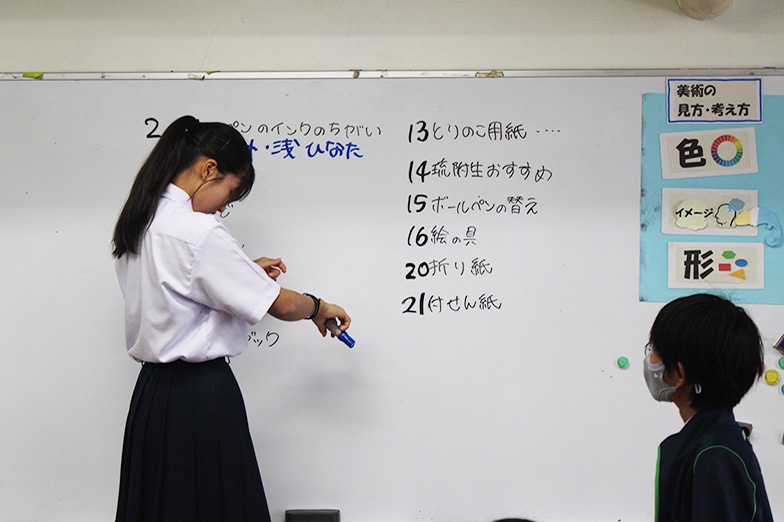 2 ペンのインクのちがい
・浅 ひなた
ック
13 とりのこ用紙 ‥‥
14 琉附生おすすめ
15 ボールペンの替え
16 絵の具
20 折り紙
21 付せん紙
美術の
見方・考え方
色
イメージ
形